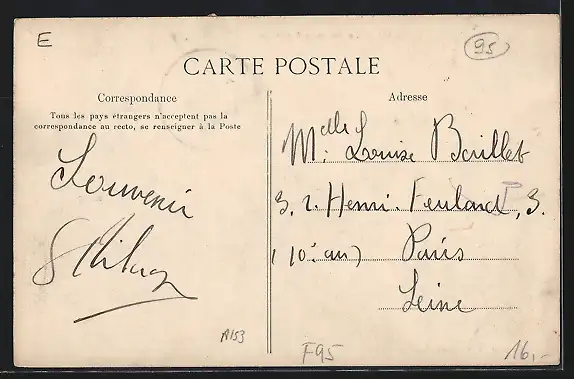 E
95
CARTE POSTALE
Correspondance
Tous les pays étrangers n'acceptent pas la
correspondance au recto, se renseigner à la Poste
Souvenir
Adresse
Melle Louise
3, r. Henri 3.
(10e arr) Paris
Seine
A153
F95
16,-